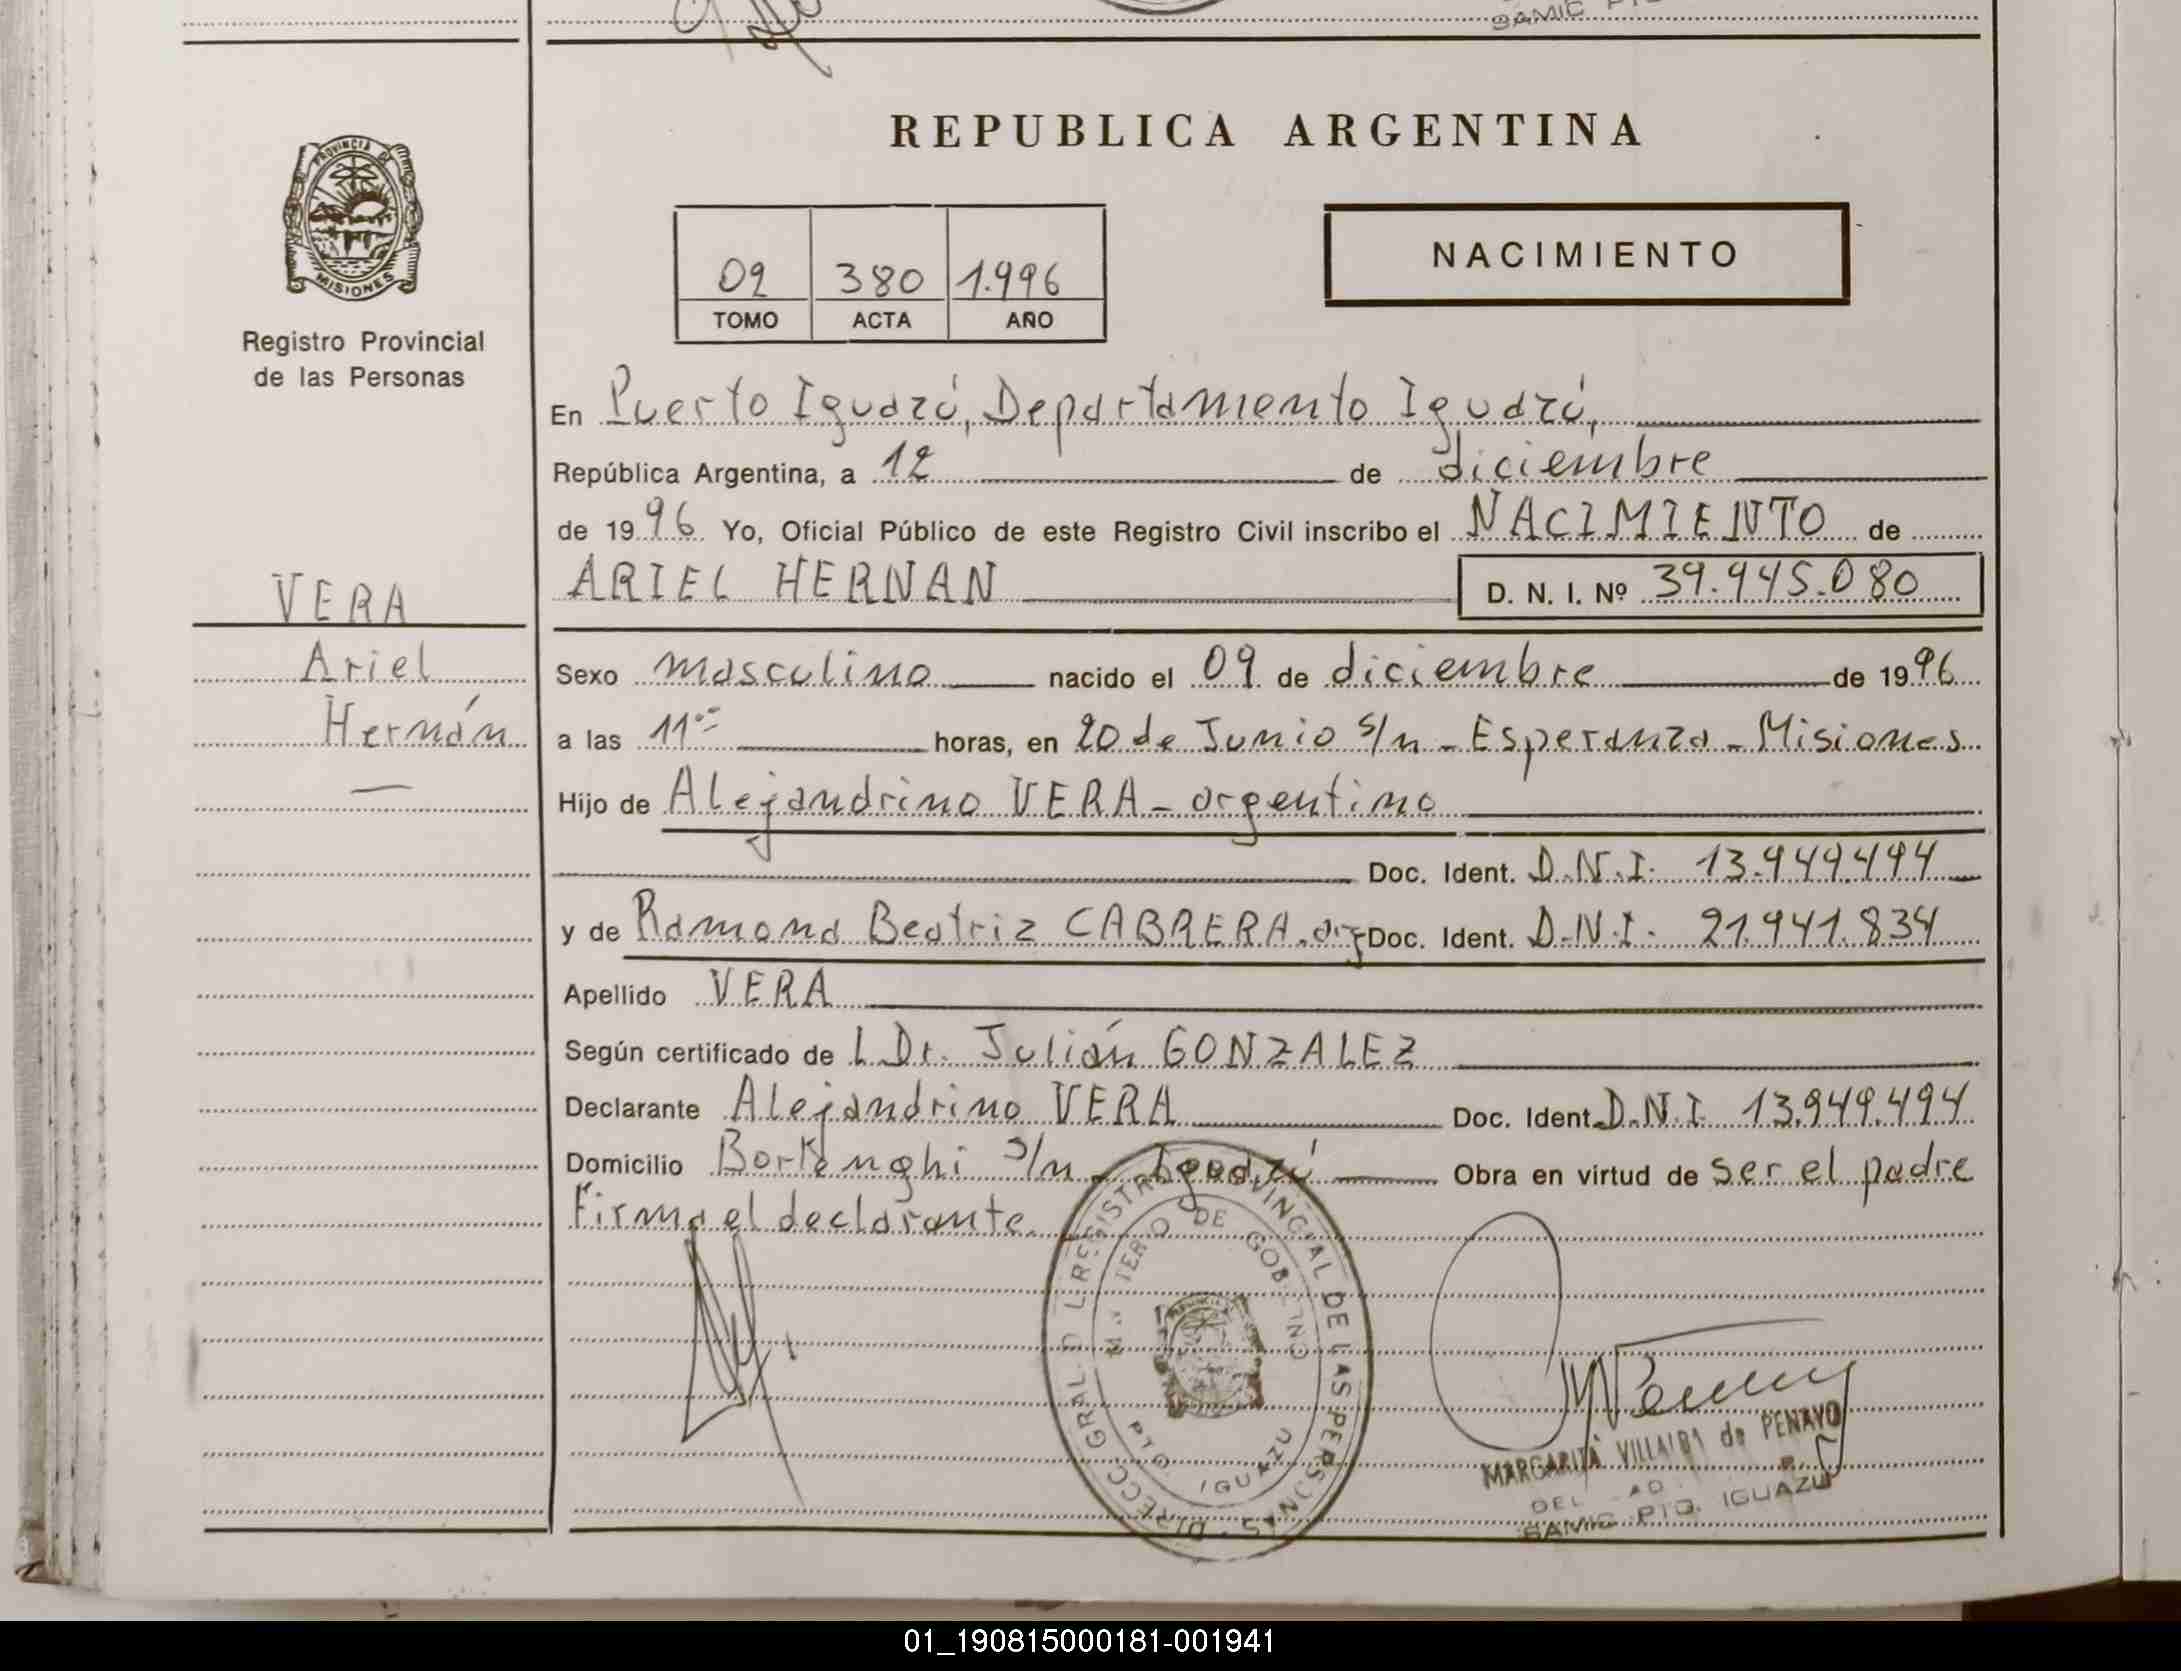 SAMIC PTO
REPUBLICA ARGENTINA
PROVINCIA DE
MISIONES
Registro Provincial
de las Personas
02 380 1.996
TOMO ACTA AÑO
NACIMIENTO
En Puerto Iguazú, Departamento Iguazú,
República Argentina, a 12 de diciembre
de 1996 Yo, Oficial Público de este Registro Civil inscribo el NACIMIENTO de
ARIEL HERNAN D. N. I. Nº 39.945.080
VERA
Ariel
Hernán
Sexo masculino nacido el 09 de diciembre de 1996
a las 11 horas, en 20 de Junio s/n - Esperanza - Misiones
Hijo de Alejandrino VERA - argentino
Doc. Ident. D.N.I. 13.949.494
y de Ramona Beatriz CABRERA. arg Doc. Ident. D.N.I. 21.941.834
Apellido VERA
Según certificado de l Dr. Julián GONZALEZ
Declarante Alejandrino VERA Doc. Ident. D.N.I. 13.949.494
Domicilio s/n - Iguazú Obra en virtud de ser el padre
Firma el declarante.
DIRECC. GRAL D L REGISTRO PROVINCIAL DE LAS PERSONAS
MINISTERIO DE GOBIERNO
PTO IGUAZU
MARGARITA VILLALBA de PENAYO
SAMIC PTO. IGUAZU
01_190815000181-001941